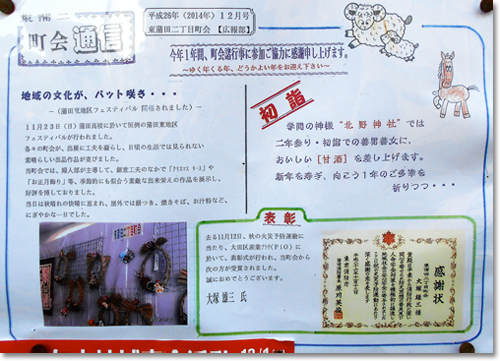 東蒲二
町会 通信
平成26年（2014年）12月号
東蒲田二丁目町会 【広報部】
今年1年間、町会諸行事に参加ご協力に感謝申し上げます。
〜ゆく年くる年、どうかよい年をお迎え下さい〜
地域の文化が、パット咲き・・・
－（蒲田東地区フェスティバル 開催されました）－
11月23日（日）蒲田高校に於いて恒例の蒲田東地区
フェスティバルが行われました。
各々の町会が、出展に工夫を凝らし、日頃の生活では見られない
素晴らしい出品作品が並びました。
当町会では、婦人部が主導して、創意工夫のなかで「クリスマス リース」や
「お正月飾り」等、季節的にも似合う素敵な出来栄えの作品を展示し、
好評を博しておりました。
当日は秋晴れの快晴に恵まれ、屋外では餅つき、焼きそば、お汁粉など、
にぎやかな一日でした。
初詣
学問の神様 "北野神社" では
二年参り・初詣での善男善女に、
おいしい [甘酒] を差し上げます。
新年を寿ぎ、向こう1年のご多幸を
祈りつつ・・・
表彰
去る11月12、秋の火災予防運動に
当たり、大田区産業プラザ（PiO）に
於いて、表彰式が行われ、当町会から
次の方が受賞されました。
誠におめでとうございます。
大塚 雄三 氏
感謝状
大塚雄三 様